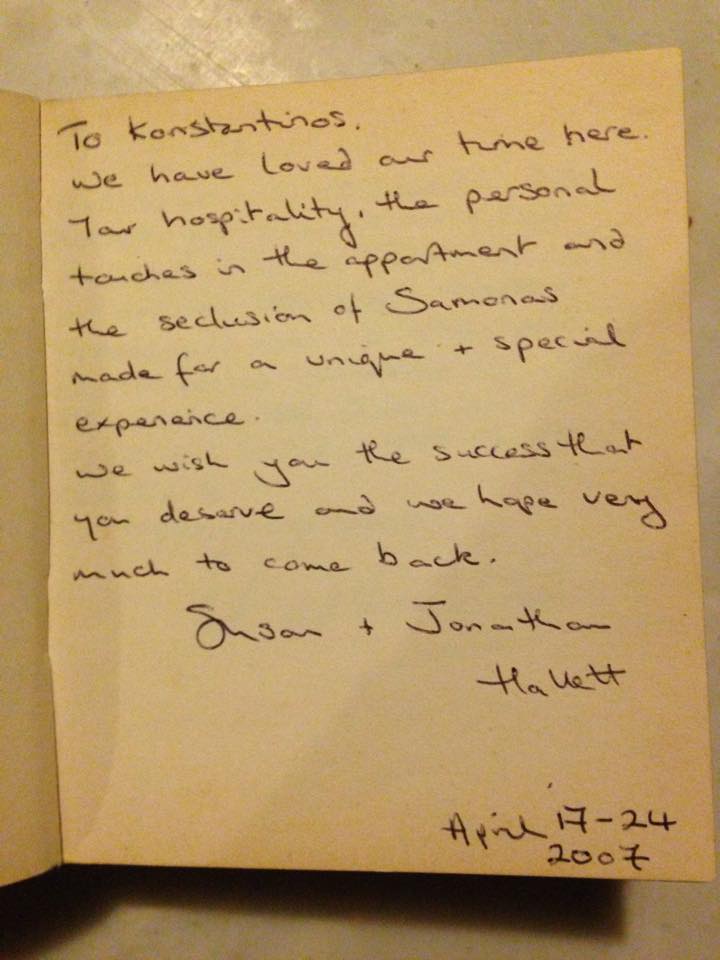 To Konstantinos.
We have loved our time here.
Your hospitality, the personal
touches in the appartment and
the seclusion of Samonas
made for a unique + special
experience.
We wish you the success that
you deserve and we hope very
much to come back.
Susan + Jonathan
Hallett
April 17-24
2007